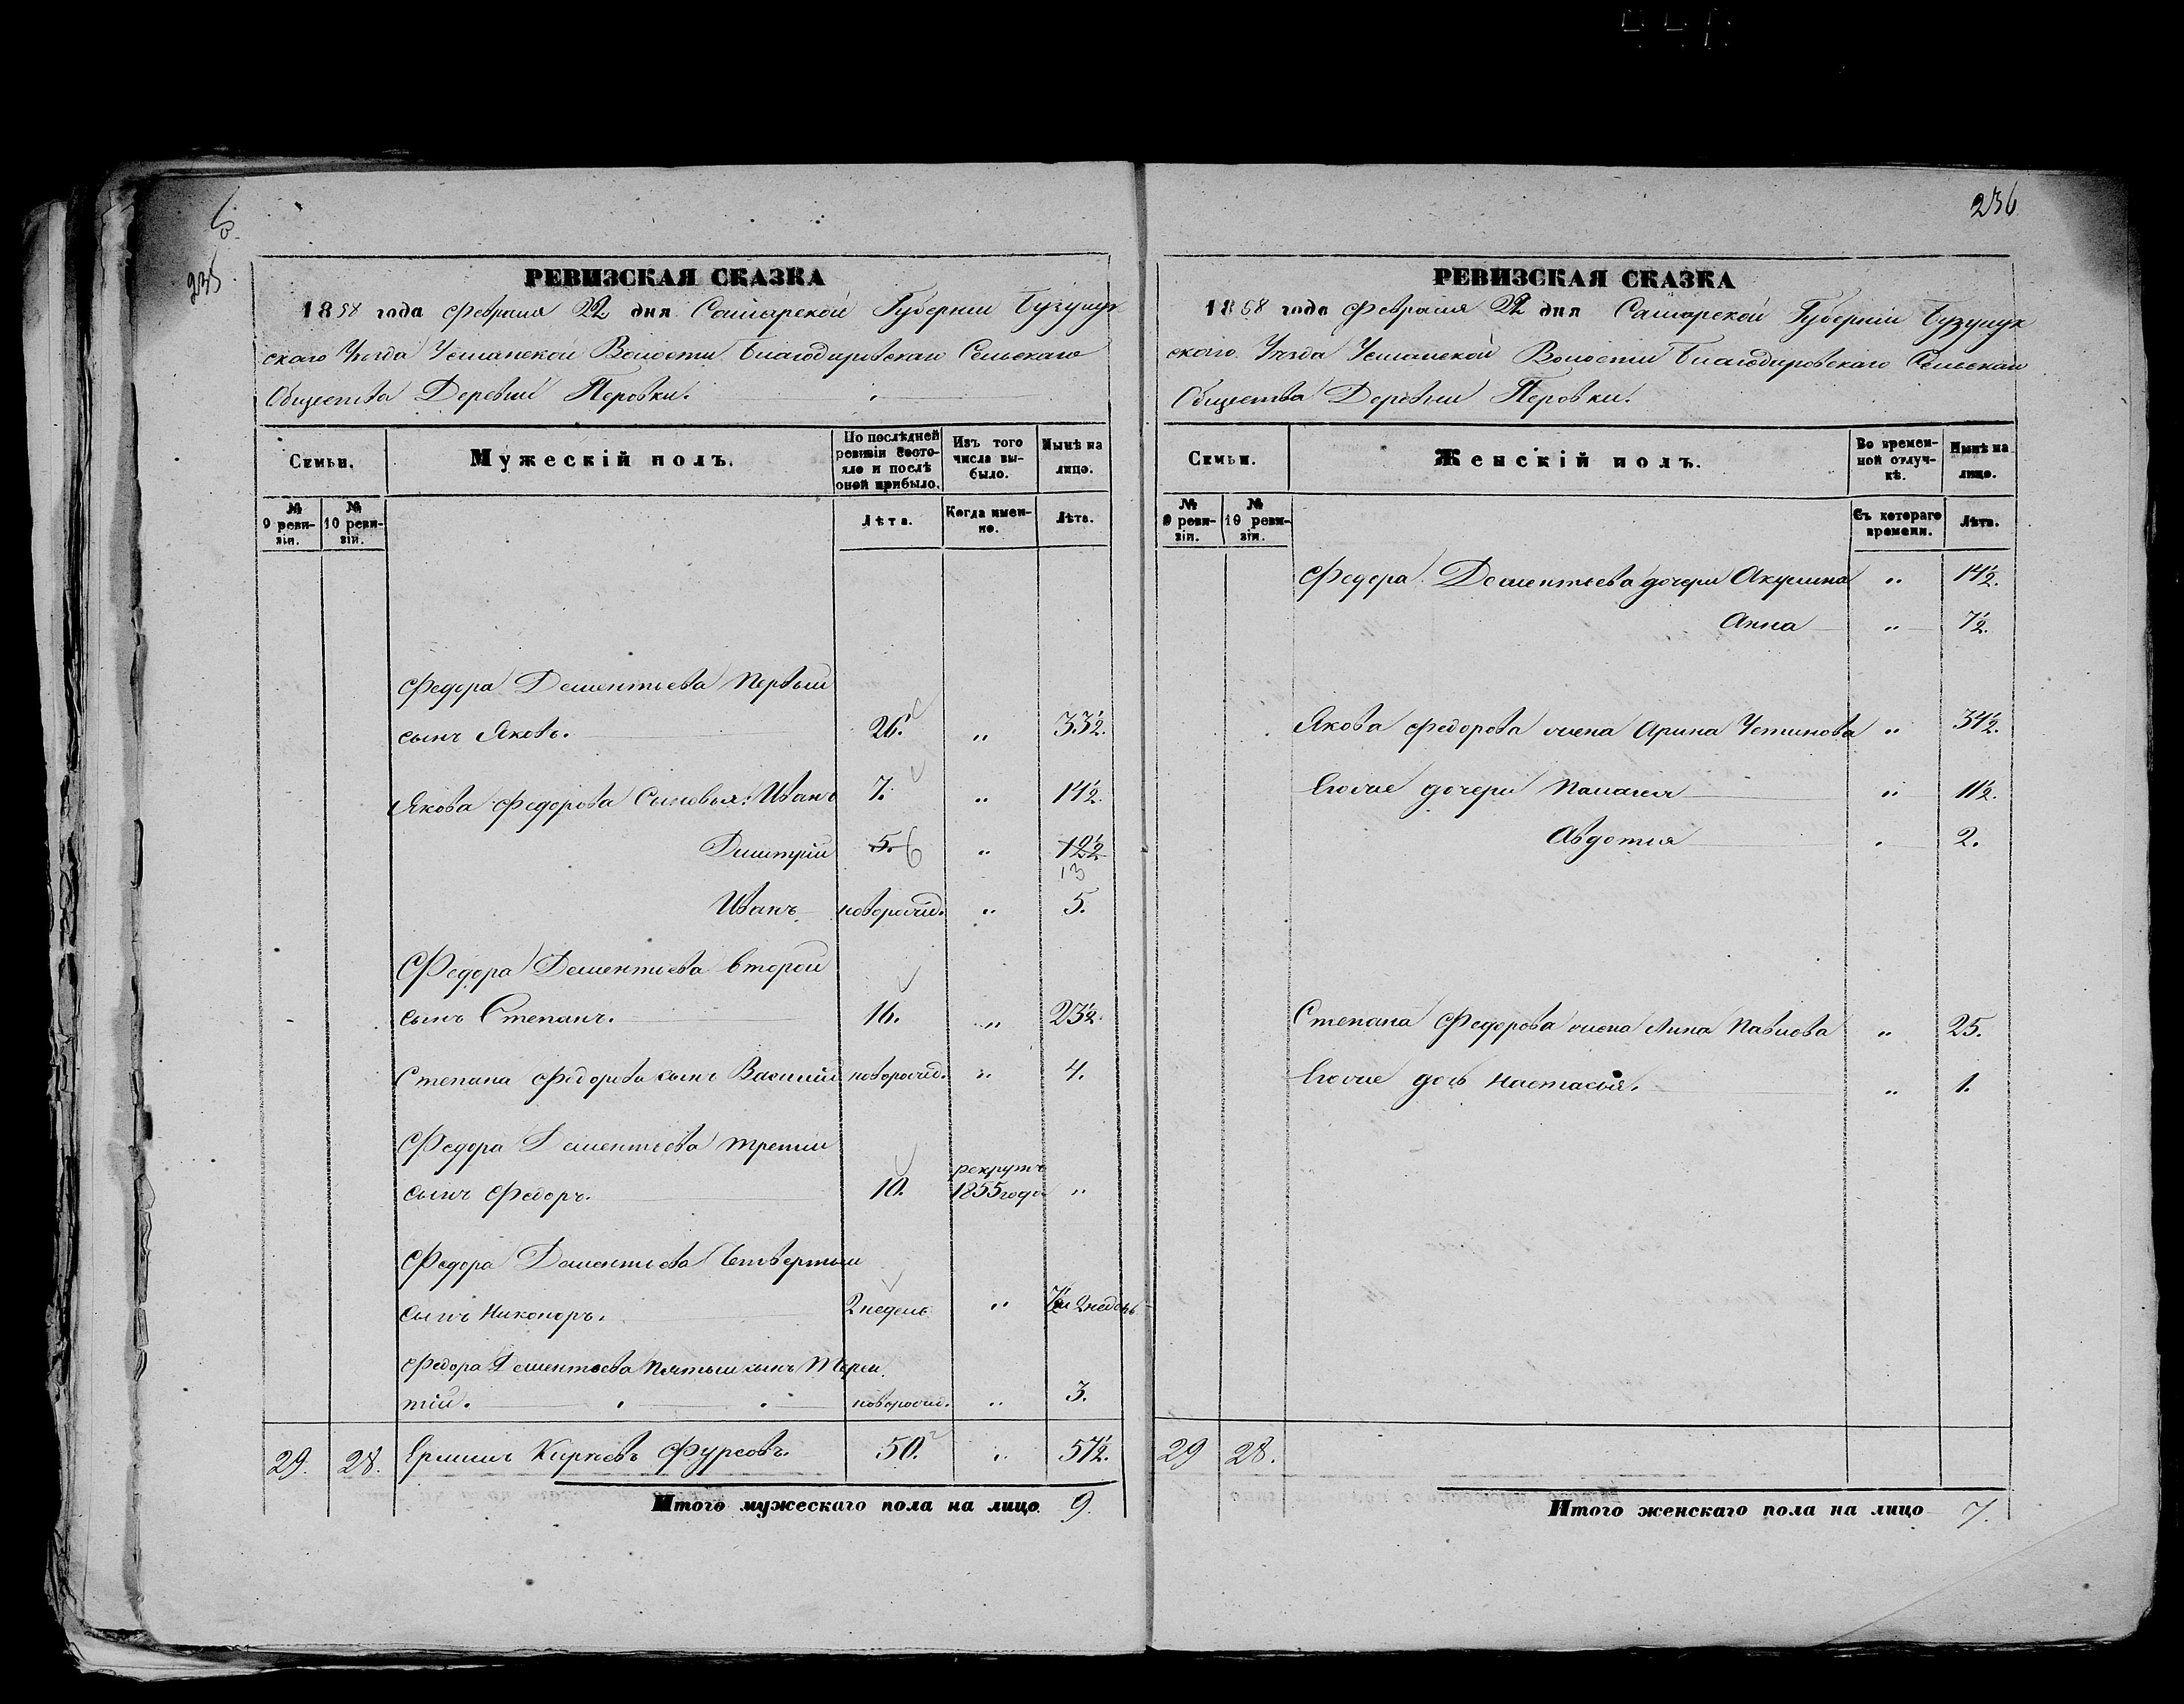 6
235
РЕВИЗСКАЯ СКАЗКА
1858 года Февраля 22 дня Самарской Губернии Бузулук
скаго Уезда Усманской Волости Благодаровскаго Сельскаго
Общества Деревни Перовки.
Семьи. Мужескій полъ. По послѣдней ревизіи состояло и послѣ оной прибыло. Изъ того числа выбыло. Нынѣ на лицо.
№ 9 ревизіи. № 10 ревизіи. Лѣта. Когда именно. Лѣта.
Федора Дементьева первый
сынъ Яковъ. 26. „ 33½.
Якова Федорова Сыновья: Иванъ 7. „ 14½.
Дмитрий 5. 6 „ 12½
13
Иванъ новорожд. „ 5.
Федора Дементьева второй
сынъ Степанъ. 16. „ 23½.
Степана Федорова сынъ Василий новорожд. „ 4.
Федора Дементьева третий
рекрутъ
сынъ Федоръ. 10. 1855 года „
Федора Дементьева Четвертый
сынъ Никоноръ. 2 недель „ 7½ 2 недель
Федора Дементьева пятый сынъ Терен
тий. новорожд. „ 3.
29. 28. Ермилъ Киреевъ Фурсовъ. 50. „ 57½.
Итого мужескаго пола на лицо 9.
236
РЕВИЗСКАЯ СКАЗКА
1858 года Февраля 22 дня Самарской Губерніи Бузулук
скаго Уезда Усманской Волости Благодаровскаго Сельскаго
Общества Деревни Перовки.
Семьи. Женскій полъ. Во временной отлучкѣ. Нынѣ на лицо.
№ 9 ревизіи. № 10 ревизіи. Съ котораго времени. Лѣта.
Федора Дементьева дочери Акулина „ 14½.
Анна „ 7½.
Якова Федорова жена Арина Устинова „ 34½.
Егоже дочери Палагея „ 11½.
Авдотья „ 2.
Степана Федорова жена Анна Павлова „ 25.
Егоже дочь Настасья. „ 1.
29 28.
Итого женскаго пола на лицо 7.